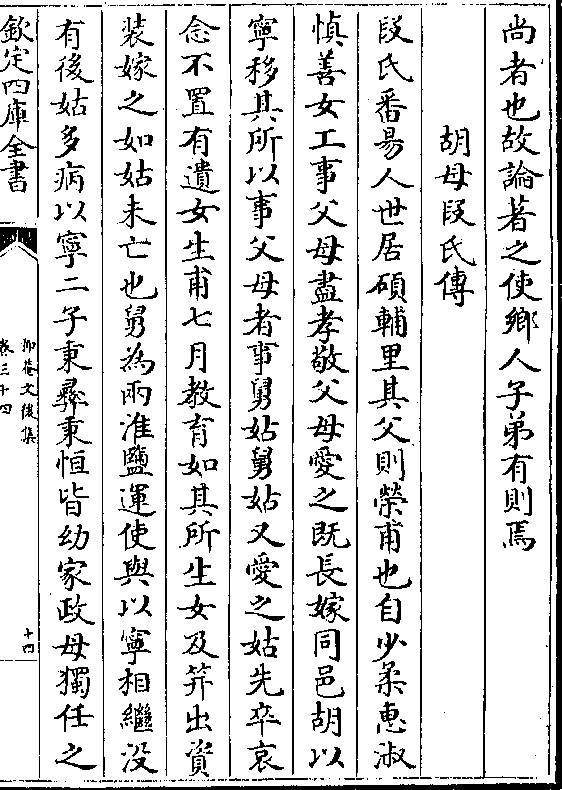 尚者也故論著之使鄉人子弟有則焉
胡母段氏傳
段氏番昜人世居碩輔里其父則榮甫也自少柔惠淑
慎善女工事父母盡孝敬父母愛之既長嫁同邑胡以
寧移其所以事父母者事舅姑舅姑又愛之姑先卒哀
念不置有遺女生甫七月教育如其所生女及笄出資
裝嫁之如姑未亡也舅為兩淮鹽運使與以寧相繼沒
有後姑多病以寧二子秉彞秉恒皆幼家政母獨任之
欽定四庫全書
抑菴文後集
卷三十四
十四